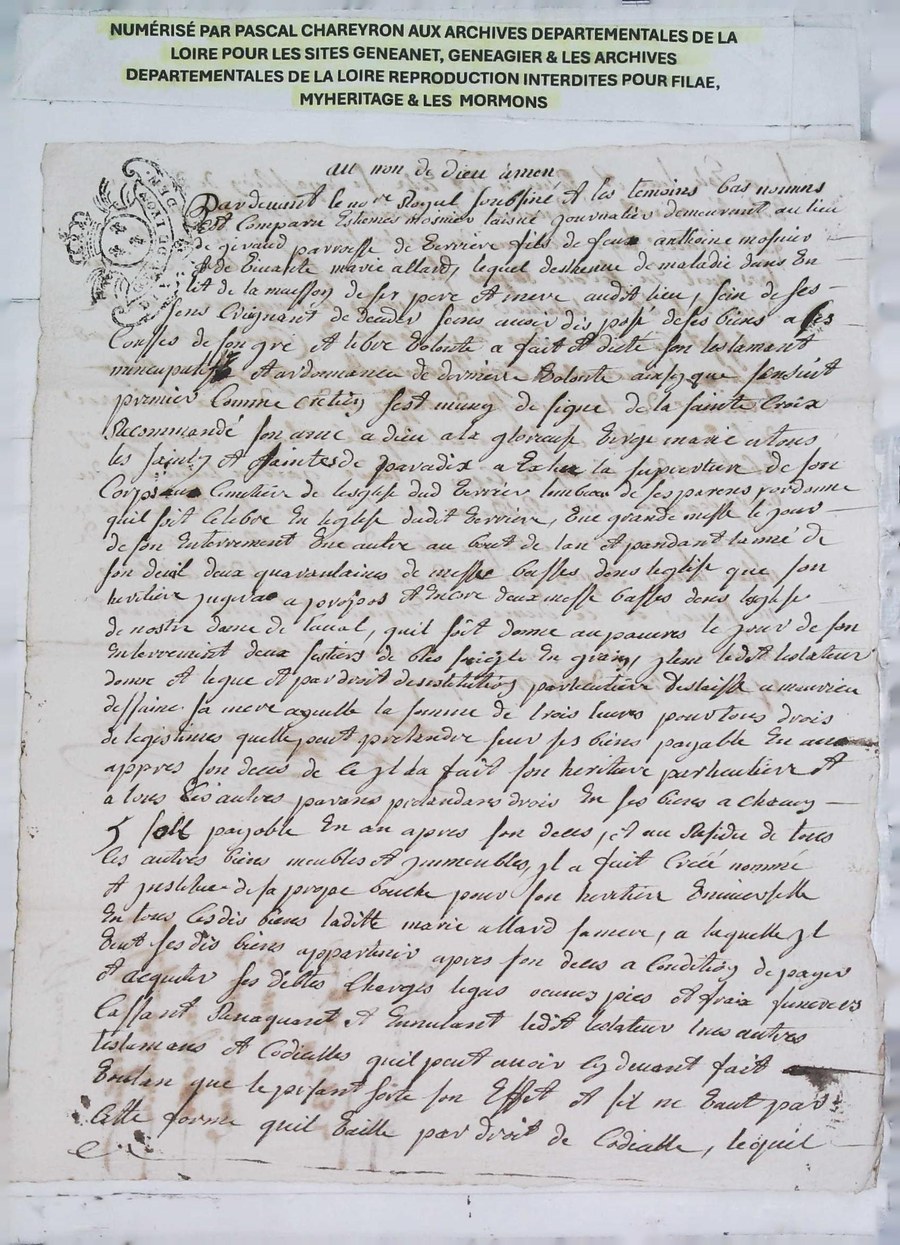 NUMÉRISÉ PAR PASCAL CHAREYRON AUX ARCHIVES DEPARTEMENTALES DE LA
LOIRE POUR LES SITES GENEANET, GENEAGIER & LES ARCHIVES
DEPARTEMENTALES DE LA LOIRE REPRODUCTION INTERDITES POUR FILAE,
MYHERITAGE & LES MORMONS
au non de dieu amen
Pardevant le nore Royal soubsiné et les temoins bas nommes
est Comparu Estienes mosnier laisné journalier demeurant au lieu
de giraud parroisse de Verriere fils de feux anthoine mosnier
et de marie allard, lequel de maladie dans un
lit de la maison de ses pere et mere audit lieu, sein de ses
sens Creignant de deceder sens avoir dis posé de ses biens a
Causses de son gré et libre Volonte a fait et dicté son testament
nuncupatif et ordonnance de derniere Volonte ainsy que sensuit
premier Comme cretien sest muny de signe de la sainte Croix
Recommandé son ame a dieu a la glorieuse Vierge marie a tous
les saints et saintes de paradix a la de son
Corps au Cimetière de leglise dud Verrier tombeau de ses parens
quil soit Celebré En leglise dudit Verrière, Une grande messe le jour
de son Enterrement Une autre au bout de lan et pandant lanné de
son deuil deux quarantaines de messe basses dens leglise que son
heritière jugera a propos et Encore deux messe basses dens leglise
de nostre dame de laval, quil soit donné au pauvres le jour de son
Enterrement deux sestiers de bled seigle En grain, plus ledit testateur
donne et legue et par droit dinstitution particulière delaisse a
sa mere aquelle la somme de trois livres pour tous drois
de legitimes quelle peut pretendre sur ses biens payable En an
appres son deces de ce il la fait son heritiere particulière et
a tous les autres parans pretandans drois En ses biens a chacun
5 sols payable En an apres son deces, et au Residu de tous
les autres biens meubles et immeubles, il a fait Créé nommé
et institué de sa propre bouche pour son heritiere Universelle
En tous lesdis biens laditte marie allard sa mere, a laquelle il
Veut ses dis biens appartenir apres son deces a Condition de payer
et acquiter ses debtes Charges legas oeuvres pies et fraix funeraires
Cassant Revoquant et Ennulant ledit testateur tous autres
testamans et Codicilles quil peut avoir cy devant fait
Voulan que le present sorte son Effet et sil ne Vaut par
Cette forme quil Vaille par droit de Codicille, lequel